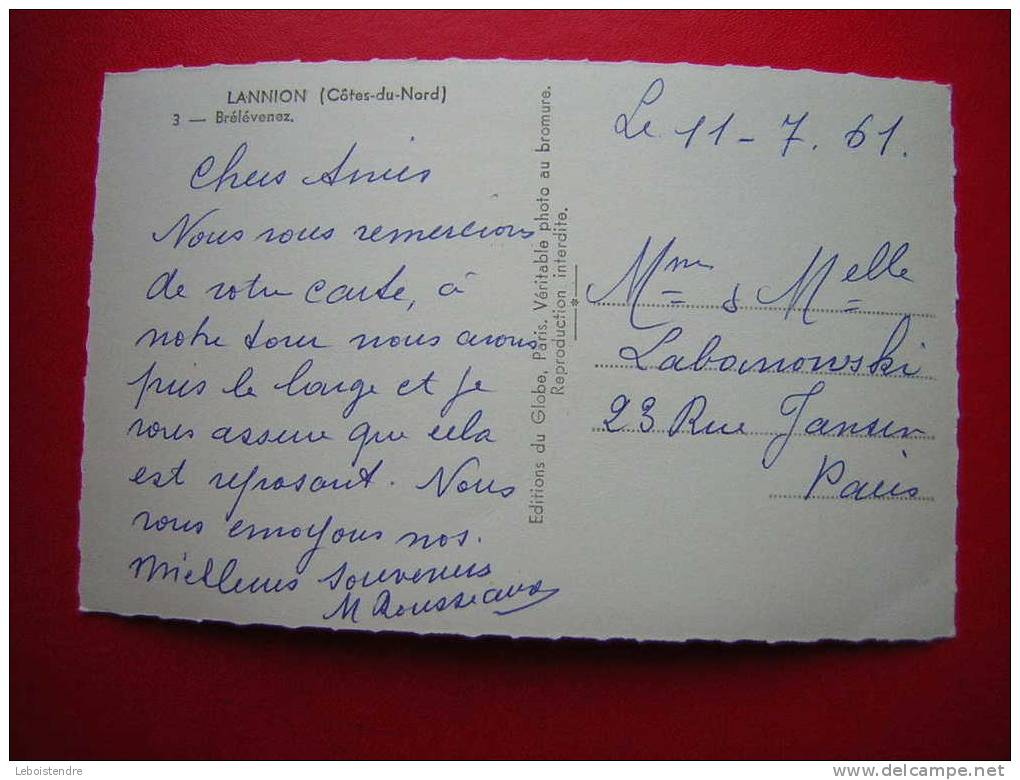 LANNION (Côtes-du-Nord)
3 — Brélévenez.
Chers Amies
Nous vous remercions
de votre carte, à
notre tour nous avons
pris le large et je
vous assure que cela
est reposant. Nous
vous envoyons nos.
Meilleurs souvenirs
M Rousseaux
Editions du Globe, Paris. Véritable photo au bromure.
Reproduction interdite.
Le 11-7.61.
Mme & Melle
Labanowski
23 Rue Jansen
Paris
Leboistendre
www.delcampe.net